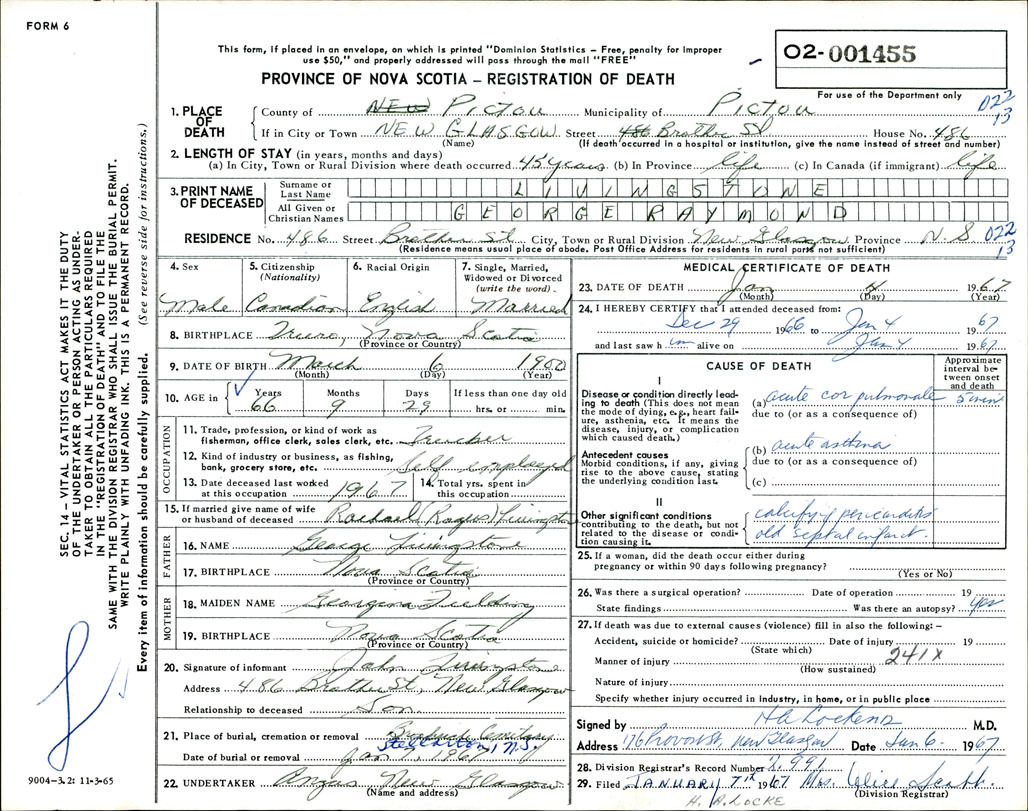 FORM 6
This form, if placed in an envelope, on which is printed "Dominion Statistics – Free, penalty for improper
use $50," and properly addressed will pass through the mail "FREE"
PROVINCE OF NOVA SCOTIA – REGISTRATION OF DEATH
O2-001455
For use of the Department only
022
13
1. PLACE OF DEATH
County of NEW PICTOU Municipality of PICTOU
If in City or Town NEW GLASGOW Street 486 Brother St House No. 486
(Name) (If death occurred in a hospital or institution, give the name instead of street and number)
2. LENGTH OF STAY (in years, months and days)
(a) In City, Town or Rural Division where death occurred 45 years (b) In Province life (c) In Canada (if immigrant) life
3. PRINT NAME OF DECEASED
Surname or Last Name LIVINGSTONE
All Given or Christian Names GEORGE RAYMOND
RESIDENCE No. 486 Street Brother St City, Town or Rural Division New Glasgow Province N.S 022
13
(Residence means usual place of abode. Post Office Address for residents in rural parts not sufficient)
4. Sex
Male
5. Citizenship (Nationality)
Canadian
6. Racial Origin
English
7. Single, Married, Widowed or Divorced (write the word)
Married
8. BIRTHPLACE Truro, Nova Scotia
(Province or Country)
9. DATE OF BIRTH March 6 1900
(Month) (Day) (Year)
10. AGE in Years Months Days If less than one day old
66 9 29 hrs. or min.
OCCUPATION
11. Trade, profession, or kind of work as fisherman, office clerk, sales clerk, etc. Trucker
12. Kind of industry or business, as fishing, bank, grocery store, etc. Self employed
13. Date deceased last worked at this occupation 1967
14. Total yrs. spent in this occupation
15. If married give name of wife or husband of deceased Rachael (Rogers) Livingstone
FATHER
16. NAME George Livingstone
17. BIRTHPLACE Nova Scotia
(Province or Country)
MOTHER
18. MAIDEN NAME Georgina Fielding
19. BIRTHPLACE Nova Scotia
(Province or Country)
20. Signature of informant John Livingstone
Address 486 Brother St, New Glasgow
Relationship to deceased Son
21. Place of burial, cremation or removal
Stellarton, N.S.
Date of burial or removal Jan 7, 1967
22. UNDERTAKER Angus New Glasgow
(Name and address)
MEDICAL CERTIFICATE OF DEATH
23. DATE OF DEATH Jan 4 1967
(Month) (Day) (Year)
24. I HEREBY CERTIFY that I attended deceased from:
Dec 29 1966 to Jan 4 1967
and last saw him alive on Jan 4 1967
CAUSE OF DEATH
Approximate interval between onset and death
I
Disease or condition directly leading to death (This does not mean the mode of dying, e.g., heart failure, asthenia, etc. It means the disease, injury, or complication which caused death.)
(a) acute cor pulmonale 5 min
due to (or as a consequence of)
Antecedent causes
Morbid conditions, if any, giving rise to the above cause, stating the underlying condition last.
(b) acute asthma
due to (or as a consequence of)
(c)
II
Other significant conditions contributing to the death, but not related to the disease or condition causing it.
calcify'g pericarditis
old septal infarct.
25. If a woman, did the death occur either during pregnancy or within 90 days following pregnancy?
(Yes or No)
26. Was there a surgical operation? Date of operation 19
State findings Was there an autopsy? yes
27. If death was due to external causes (violence) fill in also the following: –
Accident, suicide or homicide? Date of injury 19
(State which)
241X
Manner of injury
(How sustained)
Nature of injury
Specify whether injury occurred in industry, in home, or in public place
Signed by M.D.
Address 176 Provost St, New Glasgow Date Jan 6 1967
28. Division Registrar's Record Number 2,991
29. Filed JANUARY 7th 1967 Mrs. Alice
(Division Registrar)
H. A. LOCKE
SEC. 14 – VITAL STATISTICS ACT MAKES IT THE DUTY
OF THE UNDERTAKER OR PERSON ACTING AS UNDER-
TAKER TO OBTAIN ALL THE PARTICULARS REQUIRED
IN THE "REGISTRATION OF DEATH" AND TO FILE THE
SAME WITH THE DIVISION REGISTRAR WHO SHALL ISSUE THE BURIAL PERMIT.
WRITE PLAINLY WITH UNFADING INK. THIS IS A PERMANENT RECORD.
Every item of information should be carefully supplied. (See reverse side for instructions.)
9004-3.2: 11-3-65